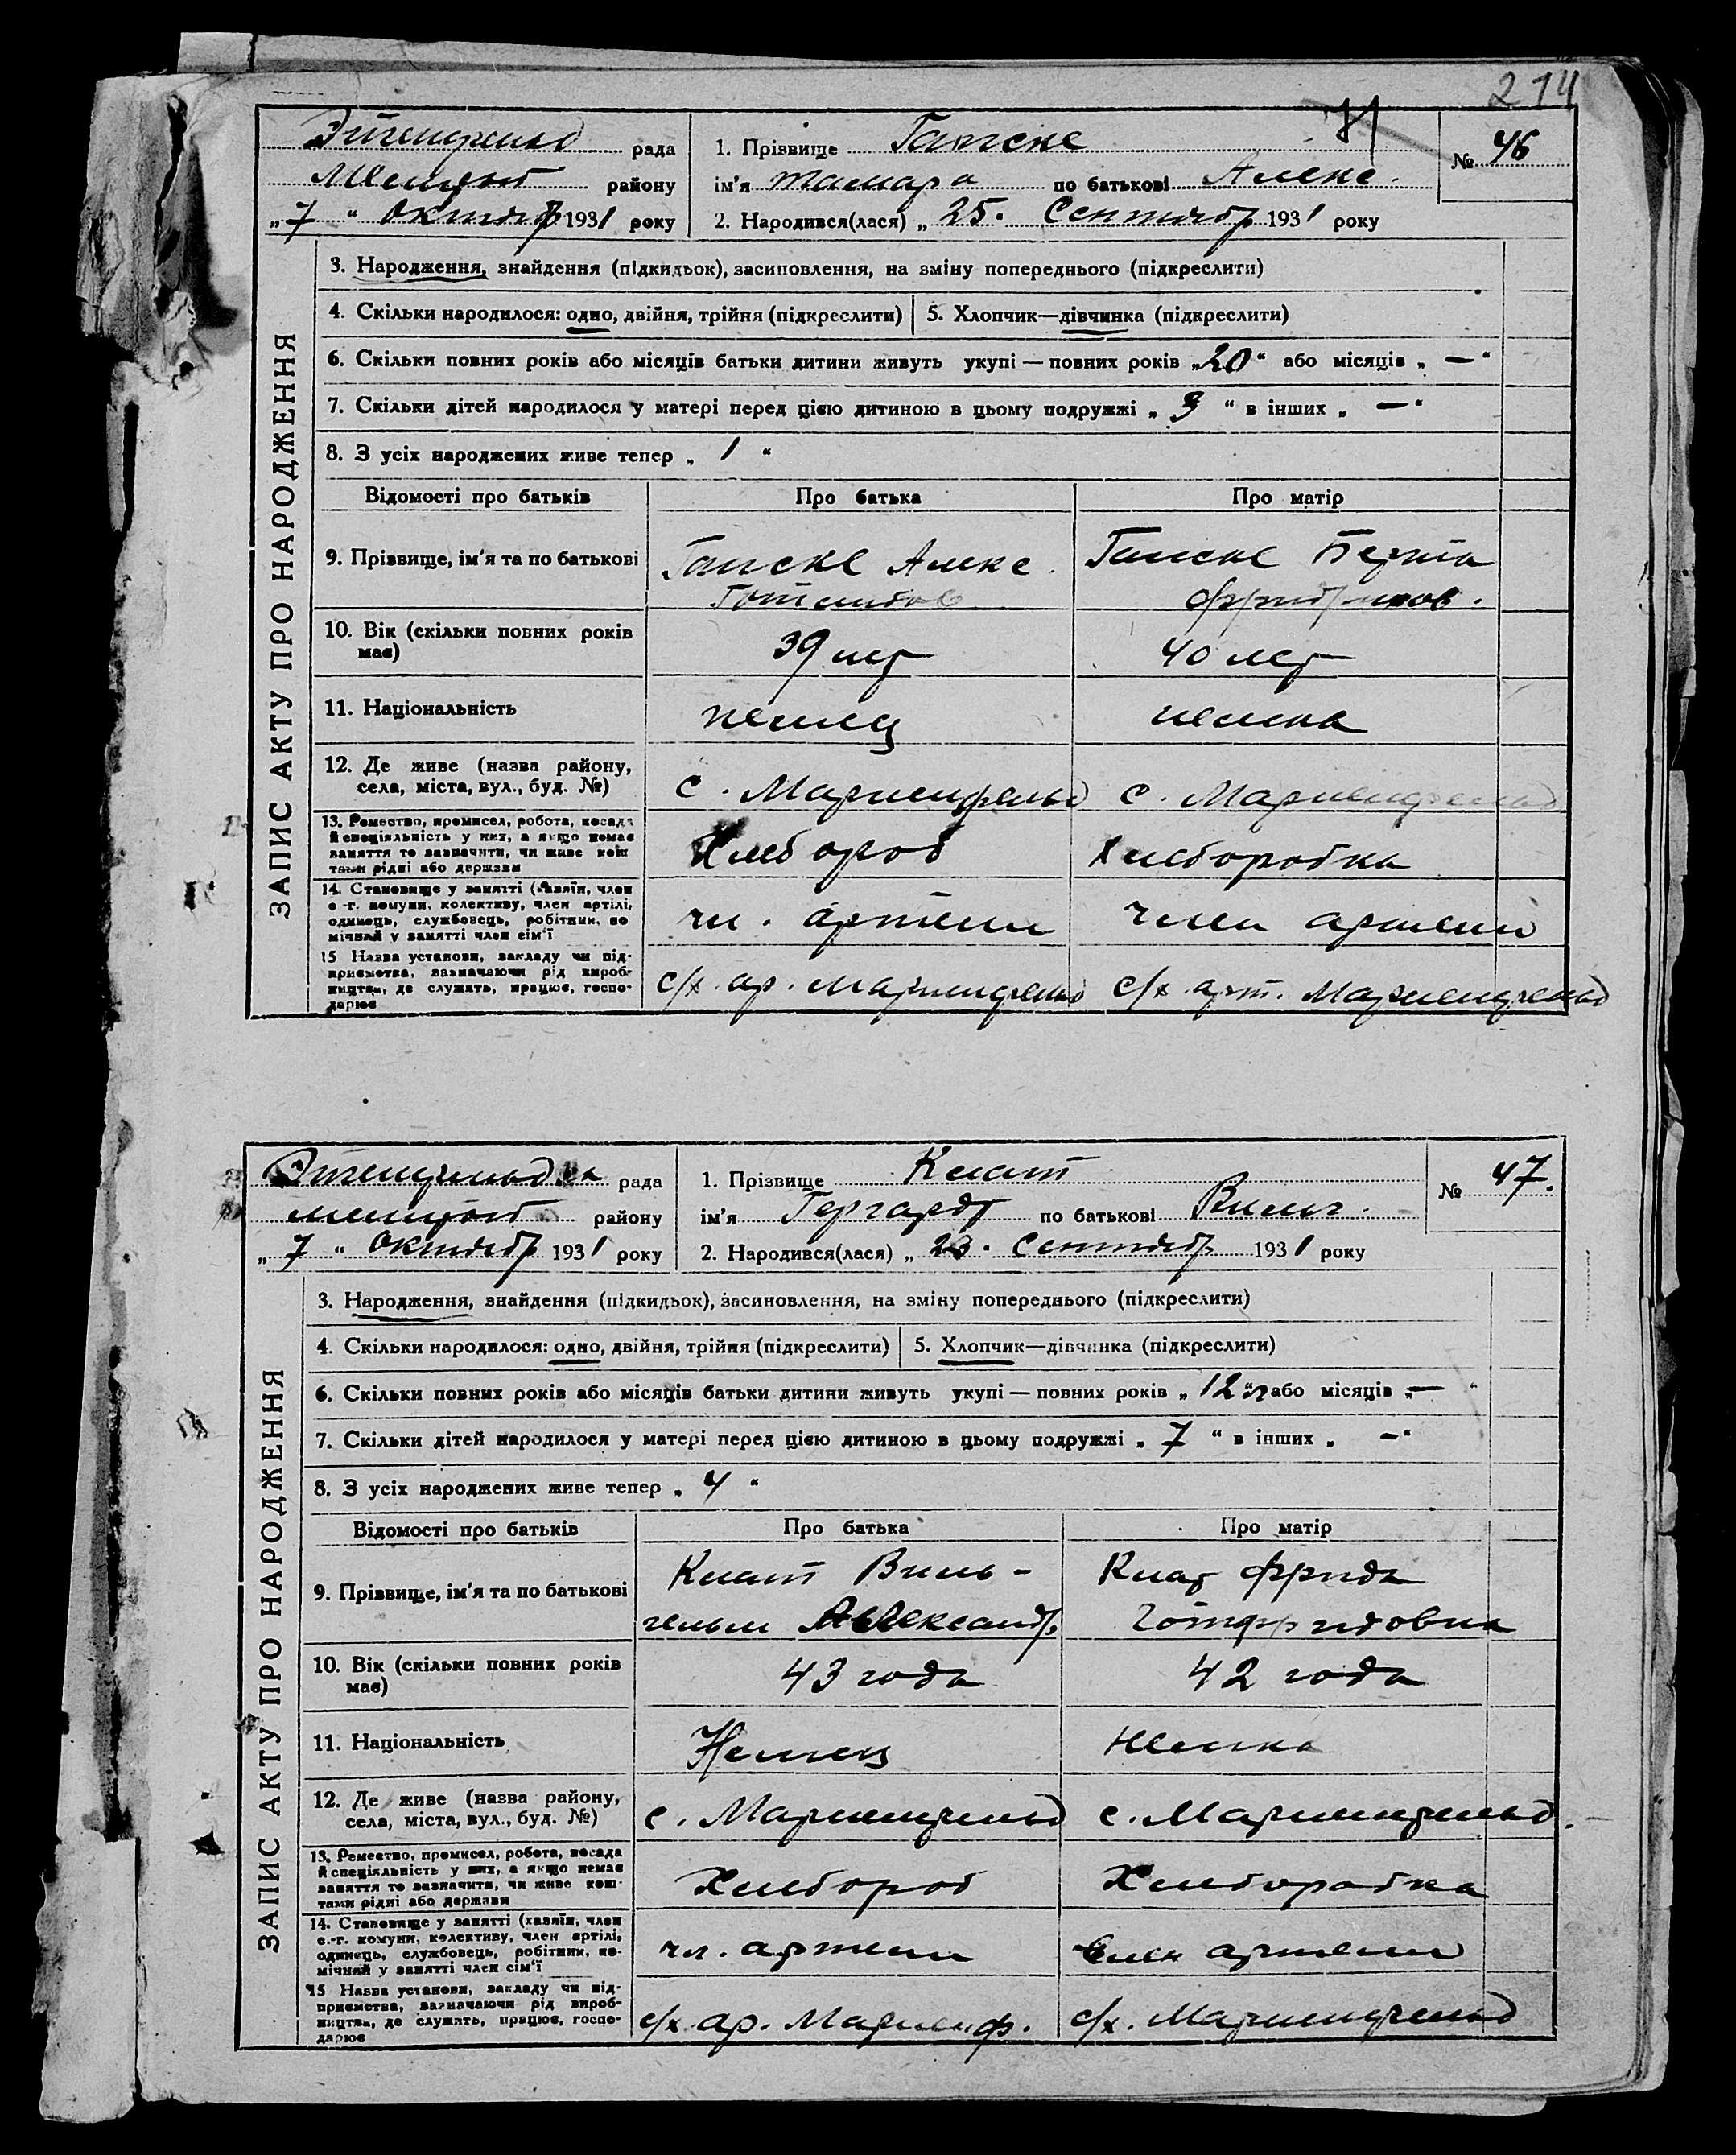 214
рада
району
„7“ Октябр 1931 року
1. Прізвище Гапске
ім'я Тамара по батькові Алекс.
2. Народився(лася) „25. Сентябр 1931 року
№ 46
ЗАПИС АКТУ ПРО НАРОДЖЕННЯ
3. Народження, знайдення (підкидьок), засиновлення, на зміну попереднього (підкреслити)
4. Скільки народилося: одно, двійня, трійня (підкреслити) 5. Хлопчик—дівчинка (підкреслити)
6. Скільки повних років або місяців батьки дитини живуть укупі — повних років „20“ або місяців „—“
7. Скільки дітей народилося у матері перед цією дитиною в цьому подружжі „3“ в інших „—“
8. З усіх народжених живе тепер „1“
Відомості про батьків Про батька Про матір
9. Прізвище, ім'я та по батькові Гапске Алекс. Гапске Берта
10. Вік (скільки повних років має) 39 лет 40 лет
11. Національність немец немка
12. Де живе (назва району, села, міста, вул., буд. №) с. Мариенфельд с. Мариенфельд
13. Ремество, промисел, робота, посада
й спеціяльність у них, а якщо немає
заняття то зазначити, чи живе кош
тами рідні або держави
Хлебороб Хлеборобка
14. Становище у занятті (хазяїн, член
с.-г. комуни, колективу, член артілі,
одинець, службовець, робітник, по
мічний у занятті член сім'ї
чл. артели член артели
15 Назва установи, закладу чи під-
приємства, зазначаючи рід вироб-
ництва, де служать, працює, госпо-
дарює
с/х ар. Мариенфельд с/х арт. Мариенфельд
рада
району
„7“ Октябр 1931 року
1. Прізвище Клат
ім'я Гергардт по батькові Вильг.
2. Народився(лася) „23. Сентябр 1931 року
№ 47.
ЗАПИС АКТУ ПРО НАРОДЖЕННЯ
3. Народження, знайдення (підкидьок), засиновлення, на зміну попереднього (підкреслити)
4. Скільки народилося: одно, двійня, трійня (підкреслити) 5. Хлопчик—дівчинка (підкреслити)
6. Скільки повних років або місяців батьки дитини живуть укупі — повних років „12“ або місяців „—“
7. Скільки дітей народилося у матері перед цією дитиною в цьому подружжі „7“ в інших „—“
8. З усіх народжених живе тепер „4“
Відомості про батьків Про батька Про матір
9. Прізвище, ім'я та по батькові Клат Виль- Клат Фрида
гельм Александр. Готфридовна
10. Вік (скільки повних років має) 43 года 42 года
11. Національність Немец Немка
12. Де живе (назва району, села, міста, вул., буд. №) с. Мариенфельд с. Мариенфельд.
13. Ремество, промисел, робота, посада
й спеціяльність у них, а якщо немає
заняття то зазначити, чи живе кош-
тами рідні або держави
Хлебороб Хлеборобка
14. Становище у занятті (хазяїн, член
с.-г. комуни, колективу, член артілі,
одинець, службовець, робітник, по-
мічний у занятті член сім'ї
чл. артели Член артели
15 Назва установи, закладу чи під-
приємства, зазначаючи рід вироб-
ництва, де служать, працює, госпо-
дарює
с/х ар. Мариенф. с/х. Мариенфельд